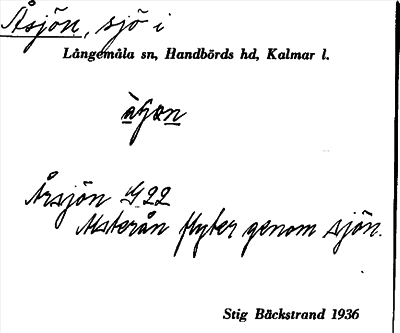 Åsjön, sjö i
Långemåla sn, Handbörds hd, Kalmar l.
Årsjön G 22
Alsterån flyter genom sjön.
Stig Bäckstrand 1936